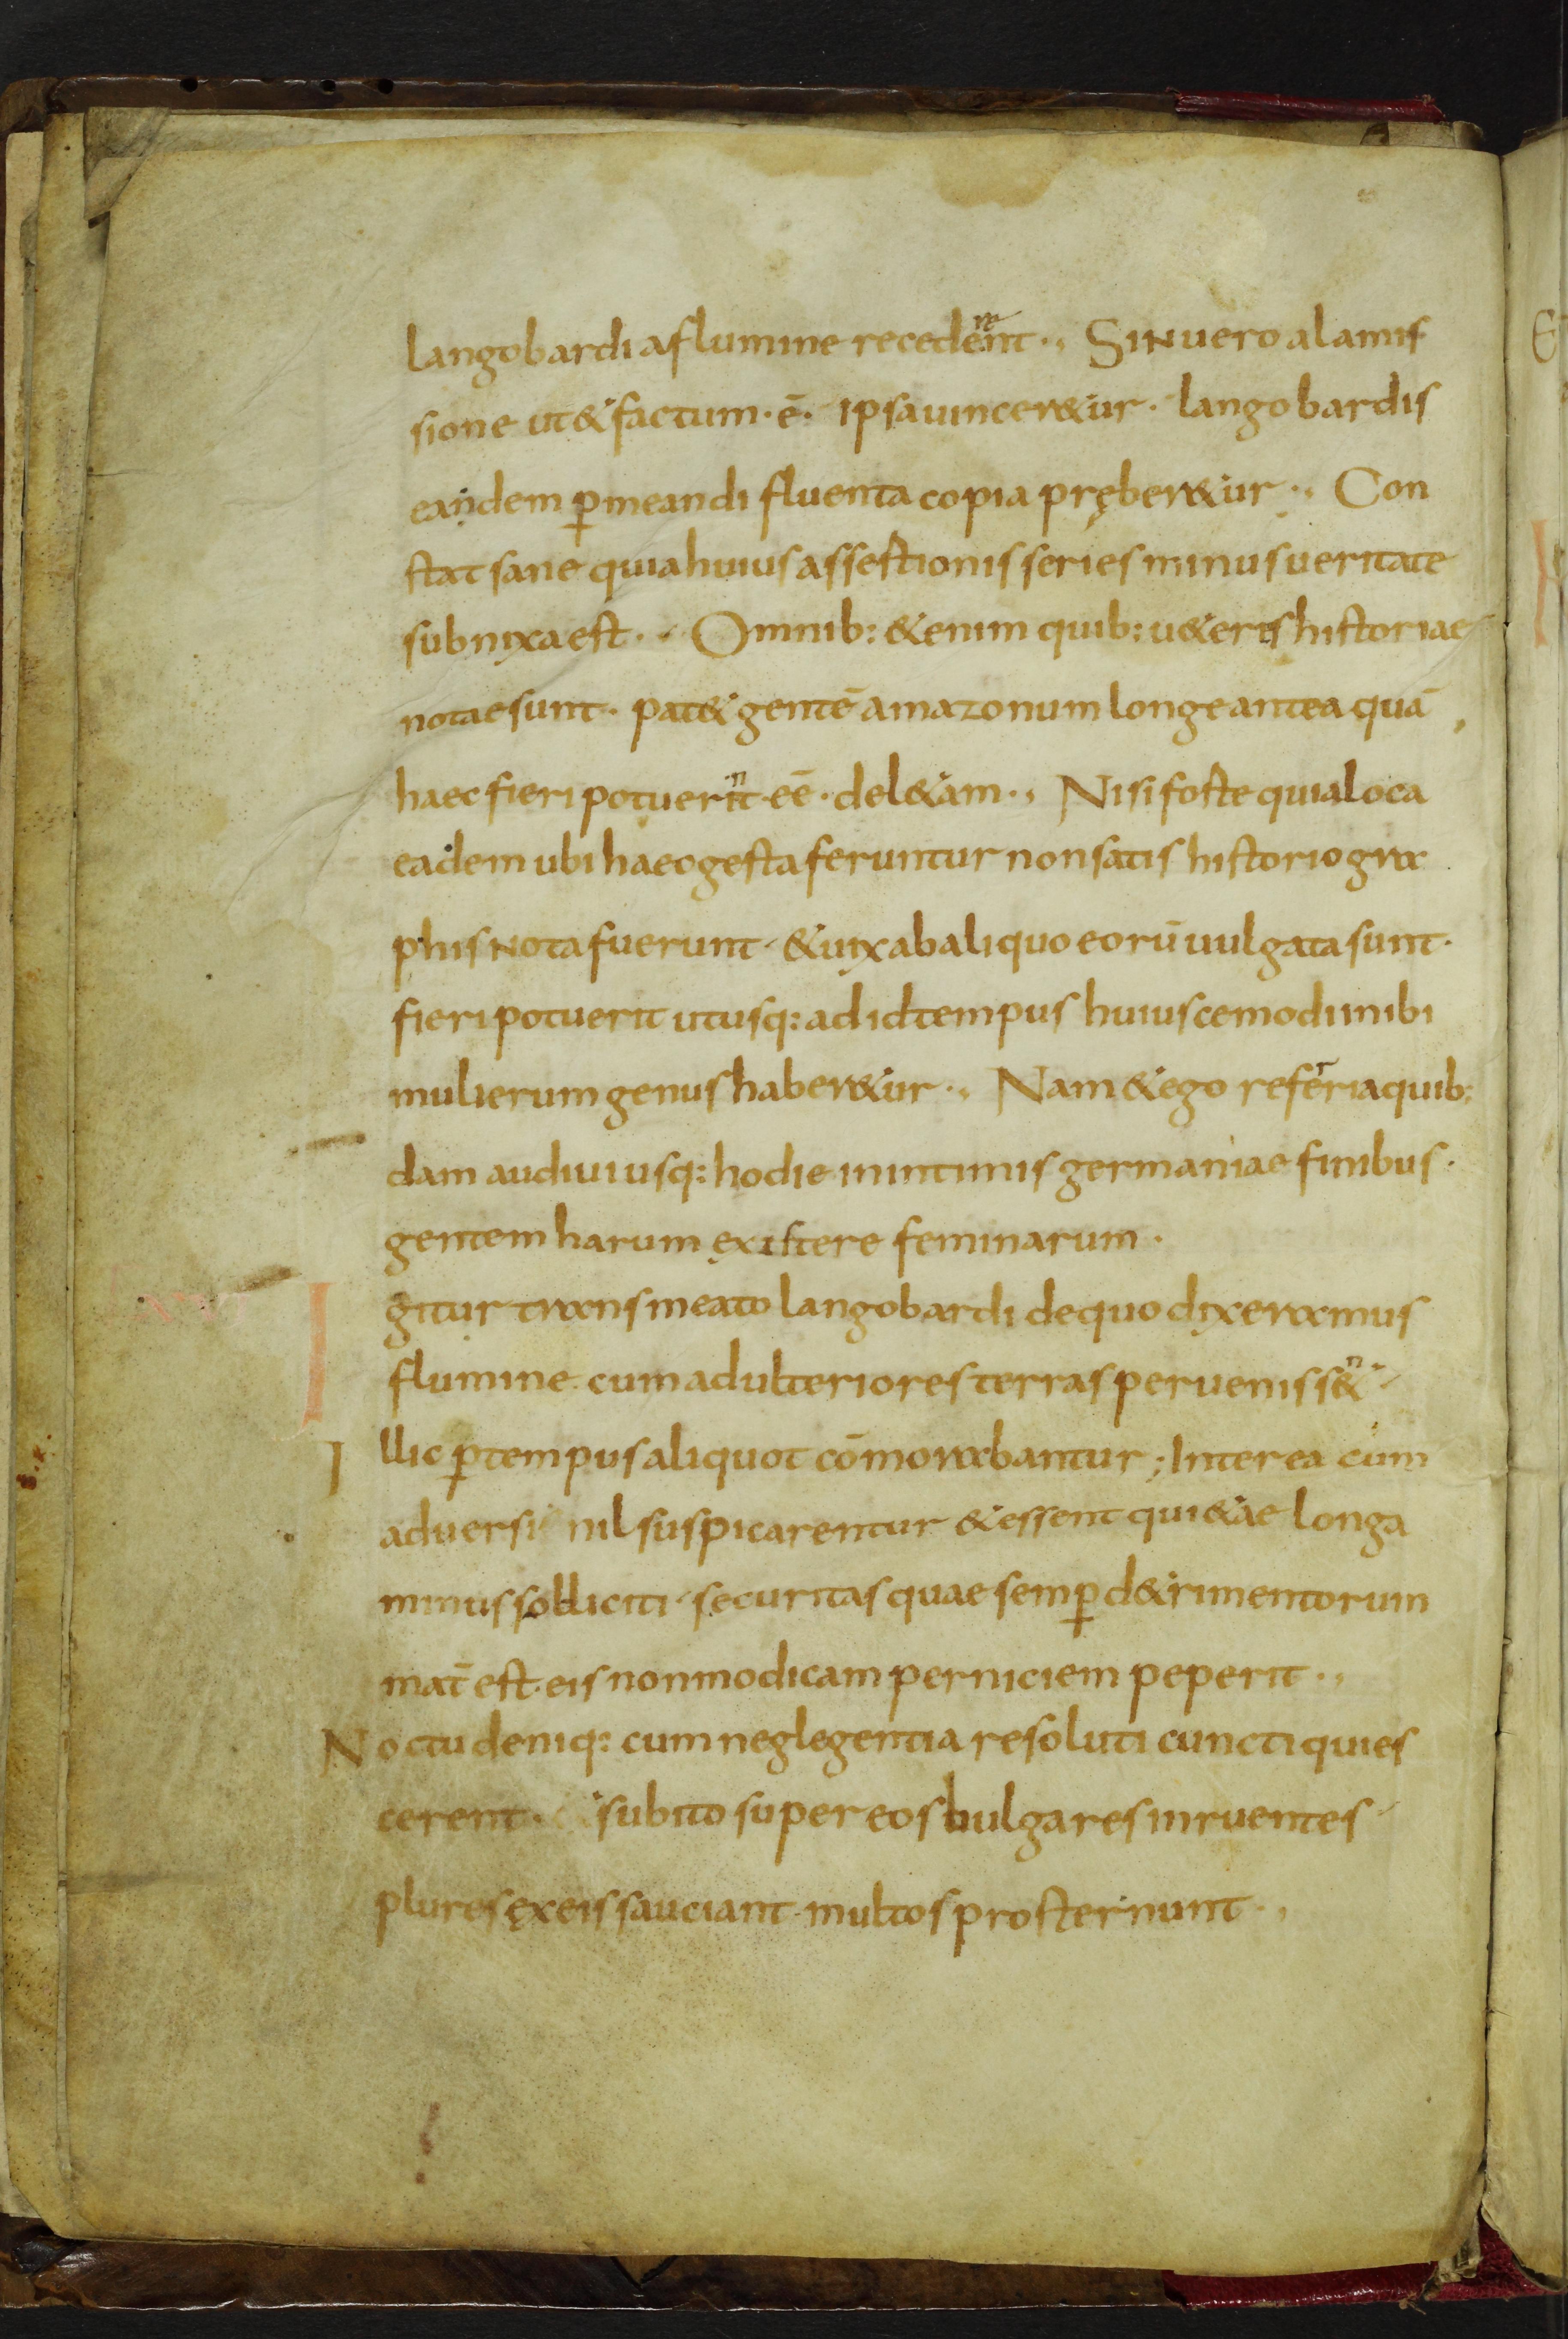 langobardi a flumine recederent·, SIN uero a lamis
sione ut & factum·ē· ipsa uincer&ur· langobardis
eandem ꝑmeandi fluenta copia pręber&ur·, Con
stat sane quia huius assestionis series minus ueritate
subnixa est·, Omnib: &enim quib: u&eris historiae
notae sunt· pat& gentē amazonum longe antea quā
haec fieri potuerint·eē·del&am·, Nisi foste quia loca
eadem ubi haec gesta feruntur non satis historiogra
phis nota fuerunt· & uix ab aliquo eorū uulgata sunt·
fieri potuerit ut usq: ad id tempus huiuscemodi inibi
mulierum genus haber&ur·, Nam & ego referri a quib;
dam audiui usq: hodie in intimis germaniae finibus·
gentem harum existere feminarum·
Igitur transmeato langobardi de quo dixeramus
flumine cum ad ulteriores terras perueniss&n·
Illic ꝑ tempus aliquot cōmorabantur; Interea cum
aduersi nil suspicarentur & essent qui&ae longa
minus solliciti· securitas quae semꝑ d&rimentorum
mat̄ est· eis non modicam perniciem peperit·,
Noctu deniq: cum neglegentia resoluti cuncti quies
cerent· subito super eos bulgares inruentes
plures ex eis sauciant· multos prosternunt·,